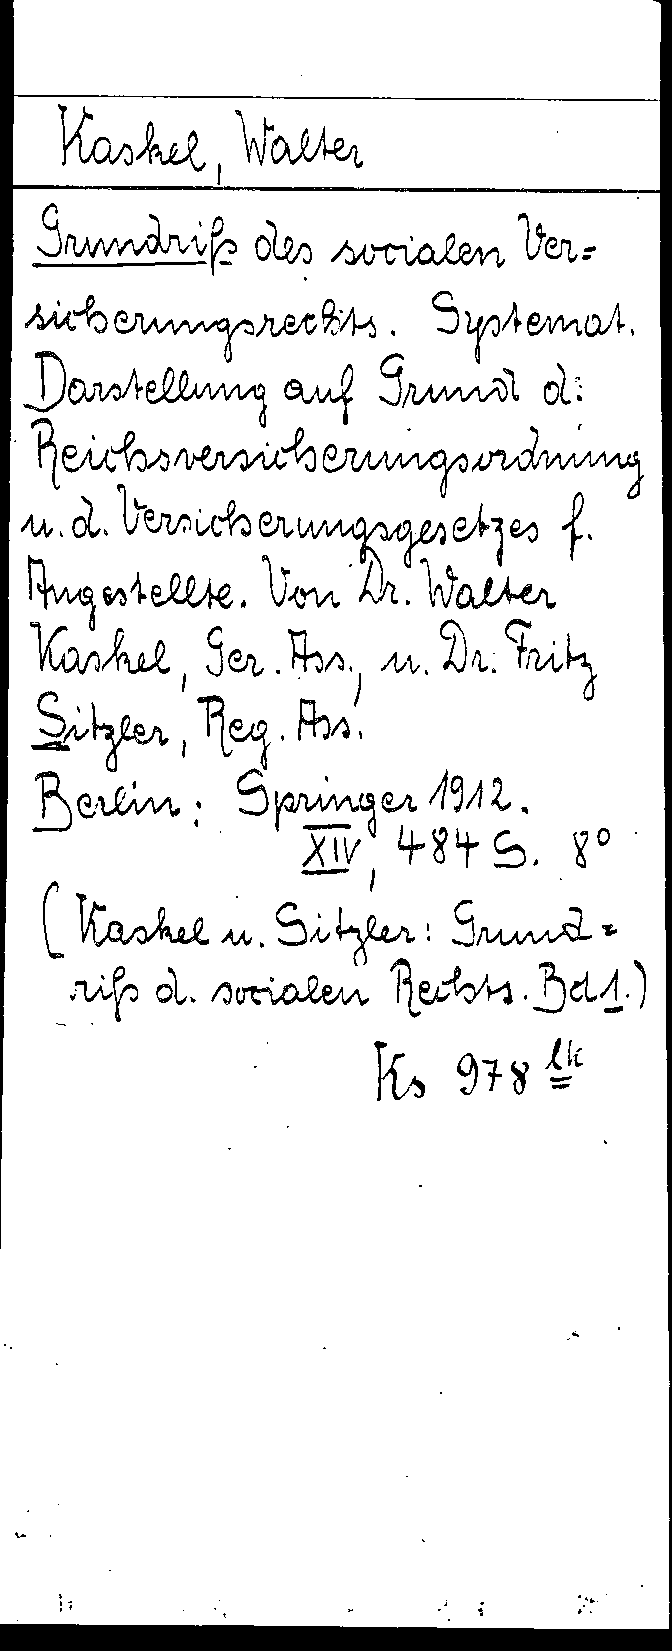 Kaskel, Walter
Grundriß des socialen Ver=
sicherungsrechts. Systemat.
Darstellung auf Grund d.
Reichsversicherungsordnung
u. d. Versicherungsgesetzes f.
Angestellte. Von Dr. Walter
Kaskel, Ger. Ass., u. Dr. Fritz
Sitzler, Reg. Ass.
Berlin: Springer 1912.
XIV, 484 S. 8°
(Kaskel u. Sitzler: Grund=
riß d. socialen Rechts. Bd 1.)
Ks 978 lk